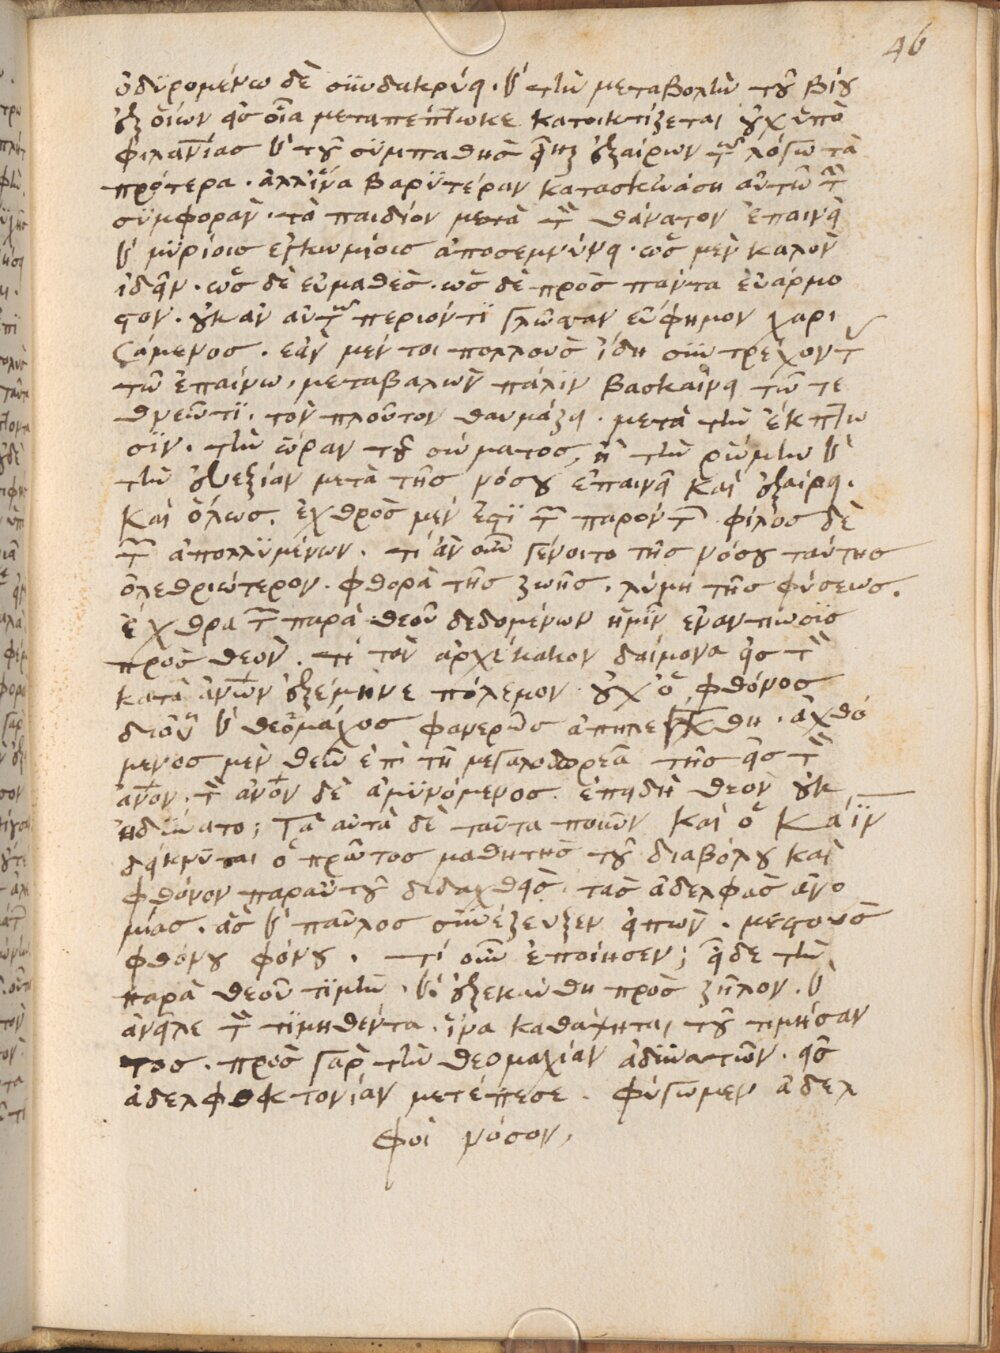 46
ὀδυρομένω δὲ συνδακρύει. καὶ τὴν μεταβολὴν τοῦ βίου
ἐξ οἵων εἰς οἷα μεταπέπτωκε κατοικτίζεται οὐχ ὑπὸ
φιλανίας καὶ τοῦ συμπαθῆσαι ἐξαίρων τῶ λόγω τὰ
πρότερα. ἀλλ' ἵνα βαρυτέραν κατασκευάση αὐτῶ τὴν
συμφορὰν. τὸ παιδίον μετὰ τὸν θάνατον ἐπαινεῖ
καὶ μυρίοις ἐγκωμίοις ἀποσεμνύνει. ὡς μὲν καλὸν
ἰδεῖν. ὡς δὲ εὐμαθὲς. ὡς δὲ πρὸς πάντα εὐάρμο
στον. οὐκ ἂν αὐτῶ περιόντι γλῶτταν εὔφημον χαρι
σάμενος. ἐὰν μέν τοι πολλοὺς ἴδη συντρέχοντας
τῶ ἐπαίνω, μεταβαλὼν πάλιν βασκαίνει τῶ τε
θνεῶτι. τὸν πλοῦτον θαυμάζει. μετὰ τὴν ἔκπτω
σιν. τὴν ὥραν τοῦ σώματος, ἢ τὴν ρώμην καὶ
τὴν εὐεξίαν μετὰ τῆς νόσου ἐπαινεῖ καὶ ἐξαίρει.
καὶ ὅλως. ἐχθρὸς μέν ἐστι τῶν παρόντων φίλος δὲ
τῶν ἀπολλυμένων. τί ἂν οὖν γένοιτο τῆς νόσου ταύτης
ὀλεθριώτερον. φθορὰ τῆς ζωῆς. λύμη τῆς φύσεως.
ἔχθρα τῶν παρὰ θεοῦ δεδομένων ἡμῖν ἐναντίωσις
πρὸς θεὸν. τί τὸν ἀρχέκακον δαίμονα εἰς τὸν
κατὰ ἀνων ἐξέμηνε πόλεμον οὐχ ὁ φθόνος
δι οὗ καὶ θεομάχος φανερῶς ἀπηλέγχθη. ἀχθό
μενος μὲν θεῶ ἐπὶ τῆ μεγαλοδωρεᾶ τῆς εἰς τὸν
ἀνον. τὸν ἀνον δὲ ἀμυνόμενος. ἐπειδὴ θεὸν οὐκ
ἠδύνατο; Τὰ αὐτὰ δὲ ταῦτα ποιῶν καὶ ὁ Κάϊν
δείκνυται ὁ πρῶτος μαθητὴς τοῦ διαβόλου καὶ
φθόνον παρ' αὐτοῦ διδαχθεὶς. τὰς ἀδελφὰς ἀνο
μίας. ἃς καὶ παῦλος συνέζευξεν εἰπὼν. μεστοὺς
φθόνου φόνου. τί οὖν ἐποίησεν; εἶδε τὴν
παρὰ θεοῦ τιμὴν. καὶ ἐξεκαύθη πρὸς ζῆλον. καὶ
ἀνεῖλε τὸν τιμηθέντα. ἵνα καθάψηται τοῦ τιμήσαν
τος. πρὸς γὰρ τὴν θεομαχίαν ἀδυνατῶν. εἰς
ἀδελφοκτονίαν μετέπεσε. φύγωμεν ἀδελ
φοὶ νόσον,